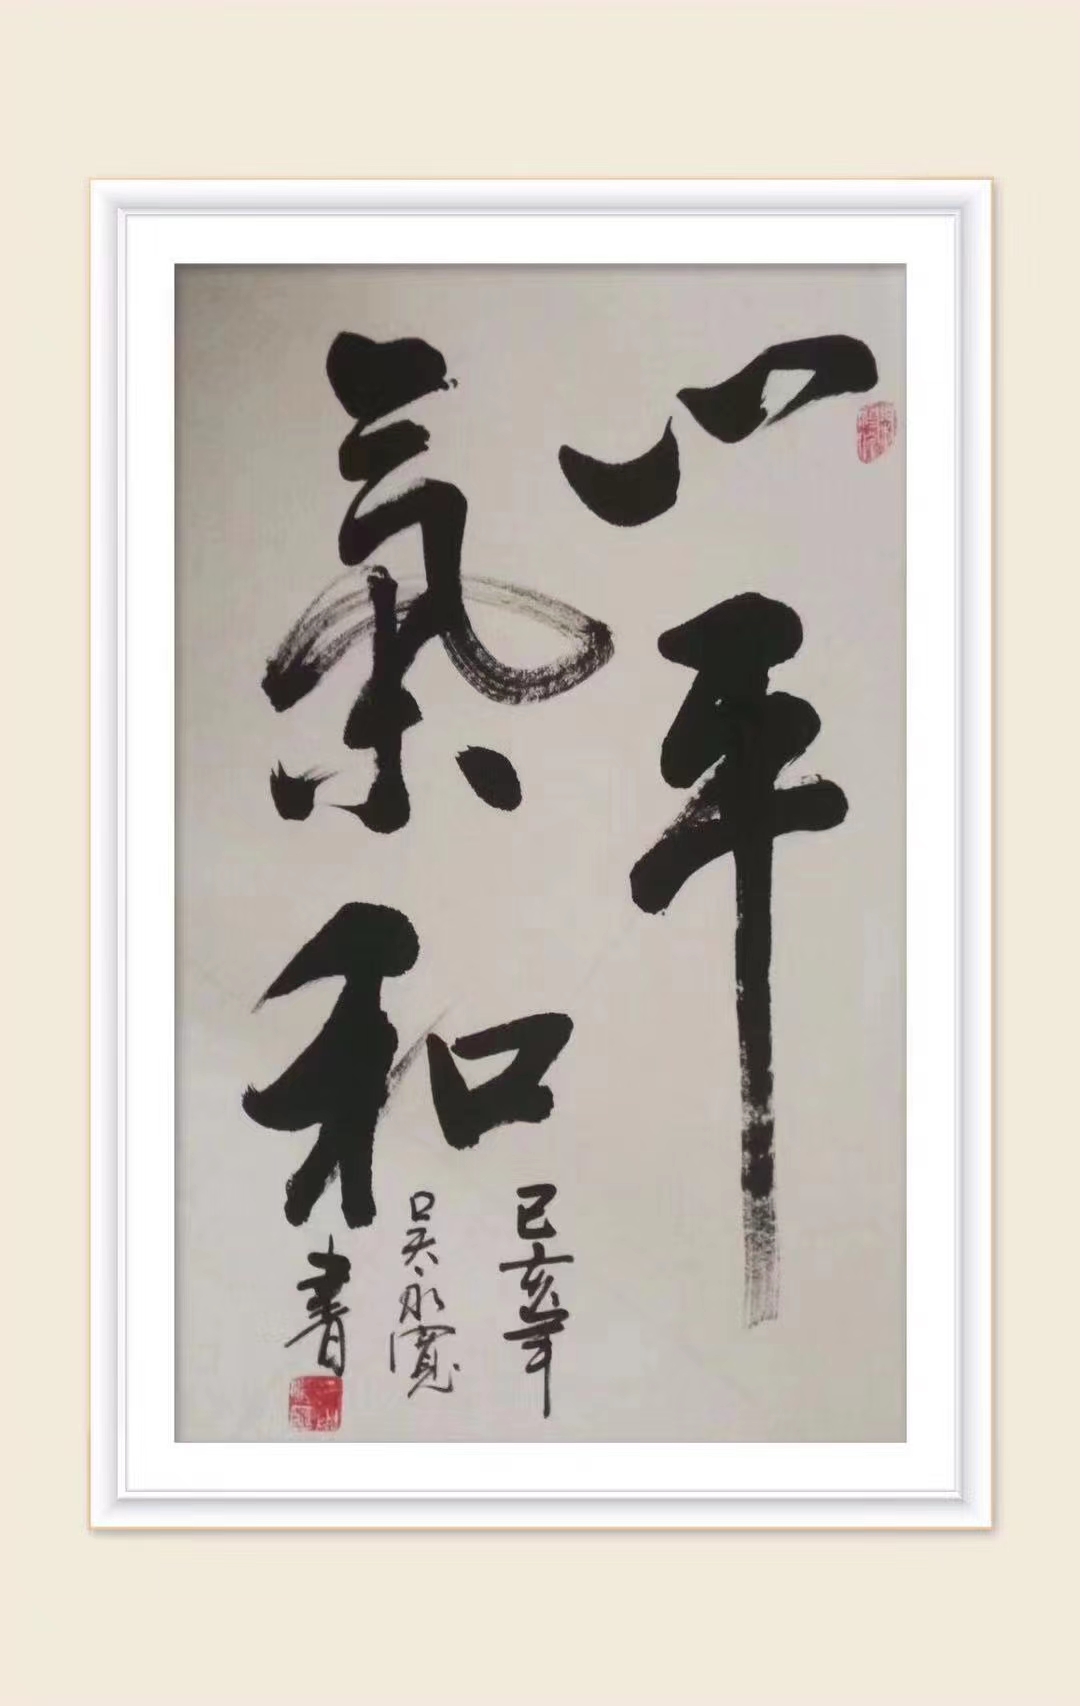 心平
氣和
己亥年
吴永寬
書